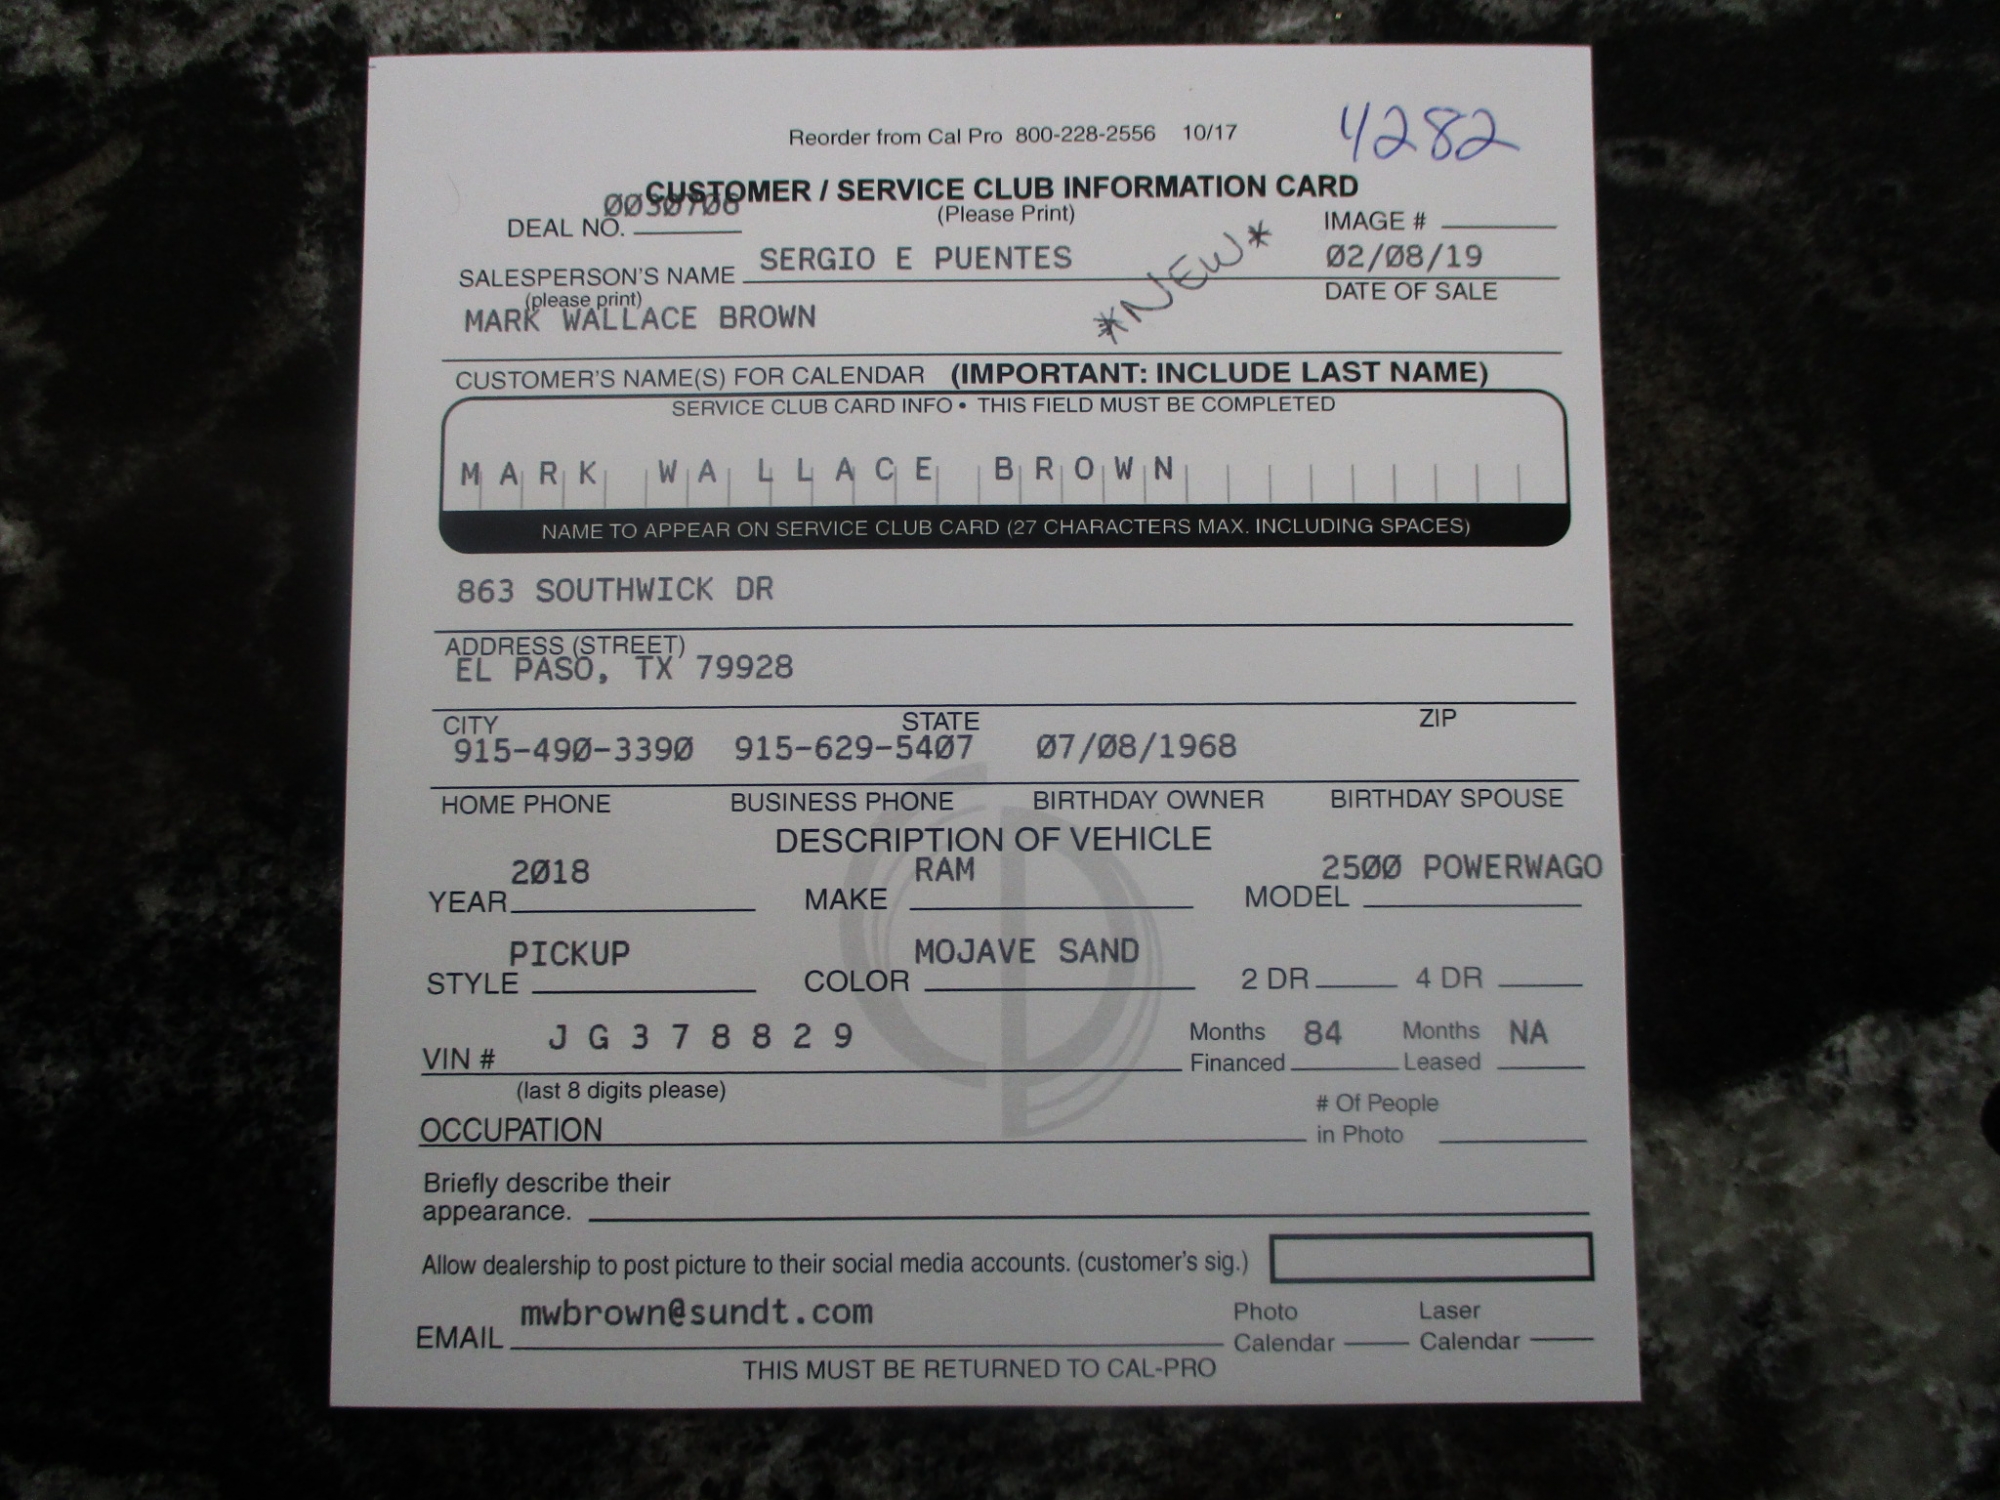 4282
Reorder from Cal Pro 800-228-2556 10/17
CUSTOMER / SERVICE CLUB INFORMATION CARD
(Please Print)
DEAL NO. 0030708
IMAGE #
SALESPERSON'S NAME SERGIO E PUENTES
(please print)
*NEW*
02/08/19
DATE OF SALE
MARK WALLACE BROWN
CUSTOMER'S NAME(S) FOR CALENDAR (IMPORTANT: INCLUDE LAST NAME)
SERVICE CLUB CARD INFO • THIS FIELD MUST BE COMPLETED
MARK WALLACE BROWN
NAME TO APPEAR ON SERVICE CLUB CARD (27 CHARACTERS MAX. INCLUDING SPACES)
863 SOUTHWICK DR
ADDRESS (STREET)
EL PASO, TX 79928
CITY STATE ZIP
915-490-3390 915-629-5407 07/08/1968
HOME PHONE BUSINESS PHONE BIRTHDAY OWNER BIRTHDAY SPOUSE
DESCRIPTION OF VEHICLE
YEAR 2018 MAKE RAM MODEL 2500 POWERWAGO
STYLE PICKUP COLOR MOJAVE SAND 2 DR 4 DR
VIN # JG378829 Months Financed 84 Months Leased NA
(last 8 digits please)
OCCUPATION # Of People in Photo
Briefly describe their
appearance.
Allow dealership to post picture to their social media accounts. (customer's sig.)
EMAIL mwbrown@sundt.com Photo Calendar Laser Calendar
THIS MUST BE RETURNED TO CAL-PRO